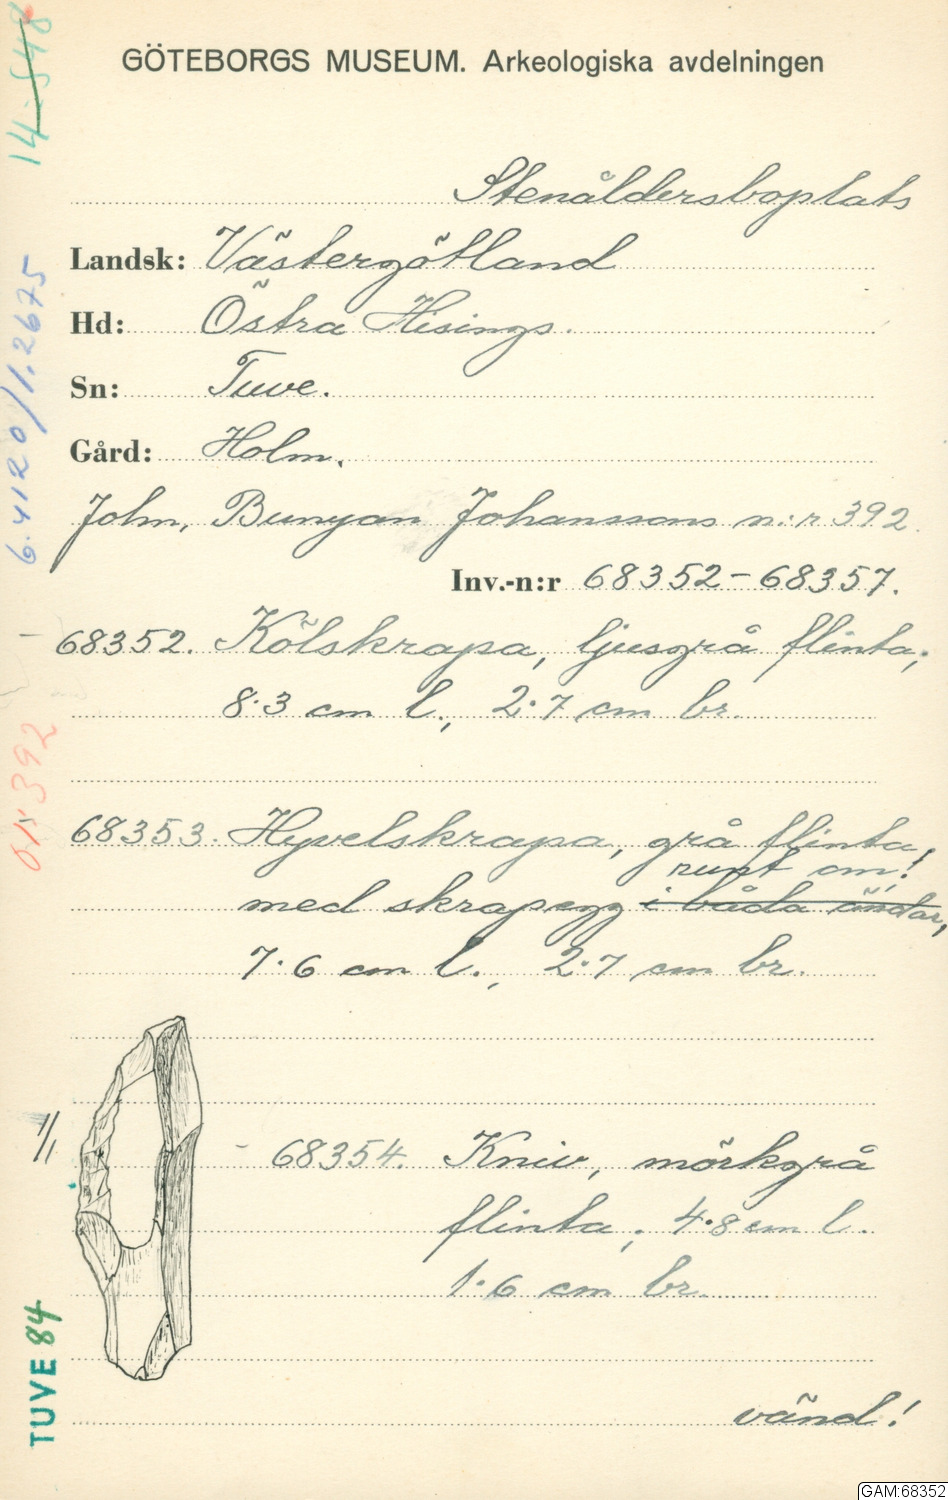 GÖTEBORGS MUSEUM. Arkeologiska avdelningen
Stenåldersboplats
Landsk: Västergötland
Hd: Östra Hisings.
Sn: Tuve.
Gård: Holm.
John, Bunyan Johanssons n:r 392.
Inv.-n:r 68352-68357.
68352. Kölskrapa, ljusgrå flinta;
8.3 cm l., 2.7 cm br.
68353. Hyvelskrapa, grå flinta,
runt om!
med skrapegg i båda ändar,
7.6 cm l., 2.7 cm br.
1/1
- 68354. Kniv, mörkgrå
flinta; 4.8 cm l.
1.6 cm br.
vänd!
14:548
6.4120/1.2675
392
TUVE 84
GAM:68352